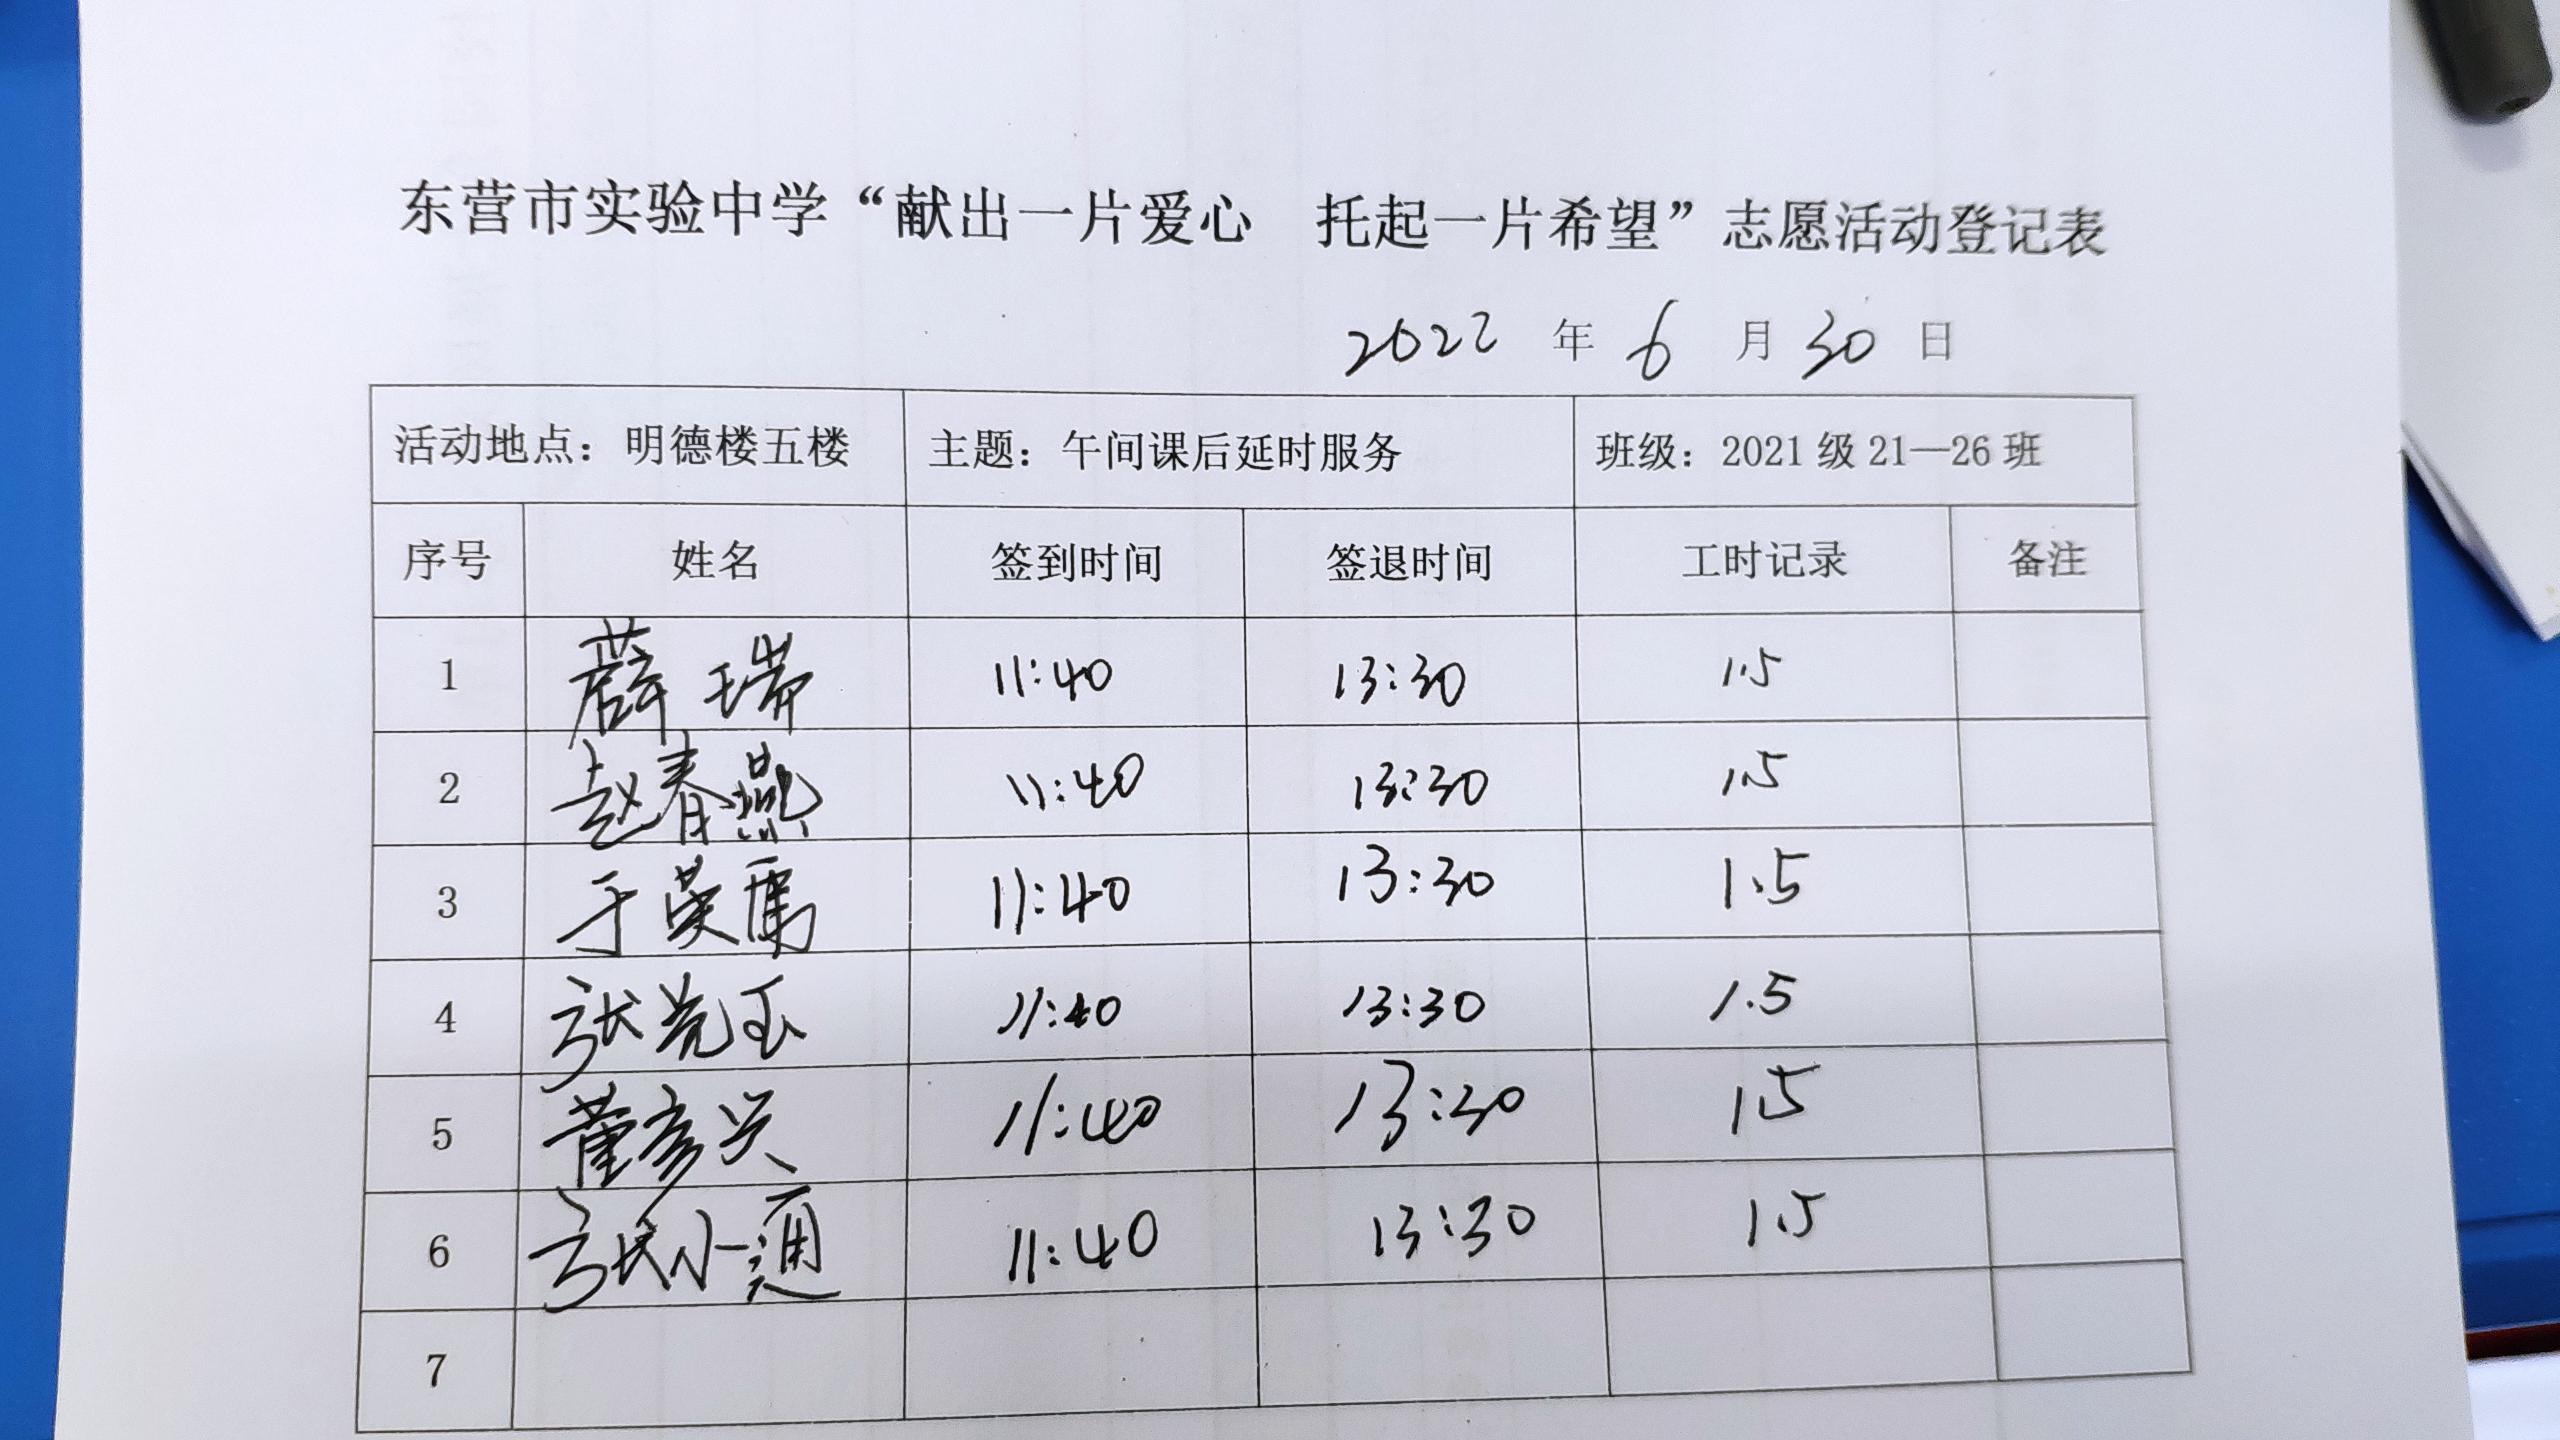 东营市实验中学“献出一片爱心 托起一片希望”志愿活动登记表
2022 年 6 月 30 日
活动地点：明德楼五楼 主题：午间课后延时服务 班级：2021级21—26班
序号 姓名 签到时间 签退时间 工时记录 备注
1 薛瑞 11:40 13:30 1.5
2 赵春燕 11:40 13:30 1.5
3 于英 11:40 13:30 1.5
4 张 玉 11:40 13:30 1.5
5 董彦兴 11:40 13:30 1.5
6 张小通 11:40 13:30 1.5
7